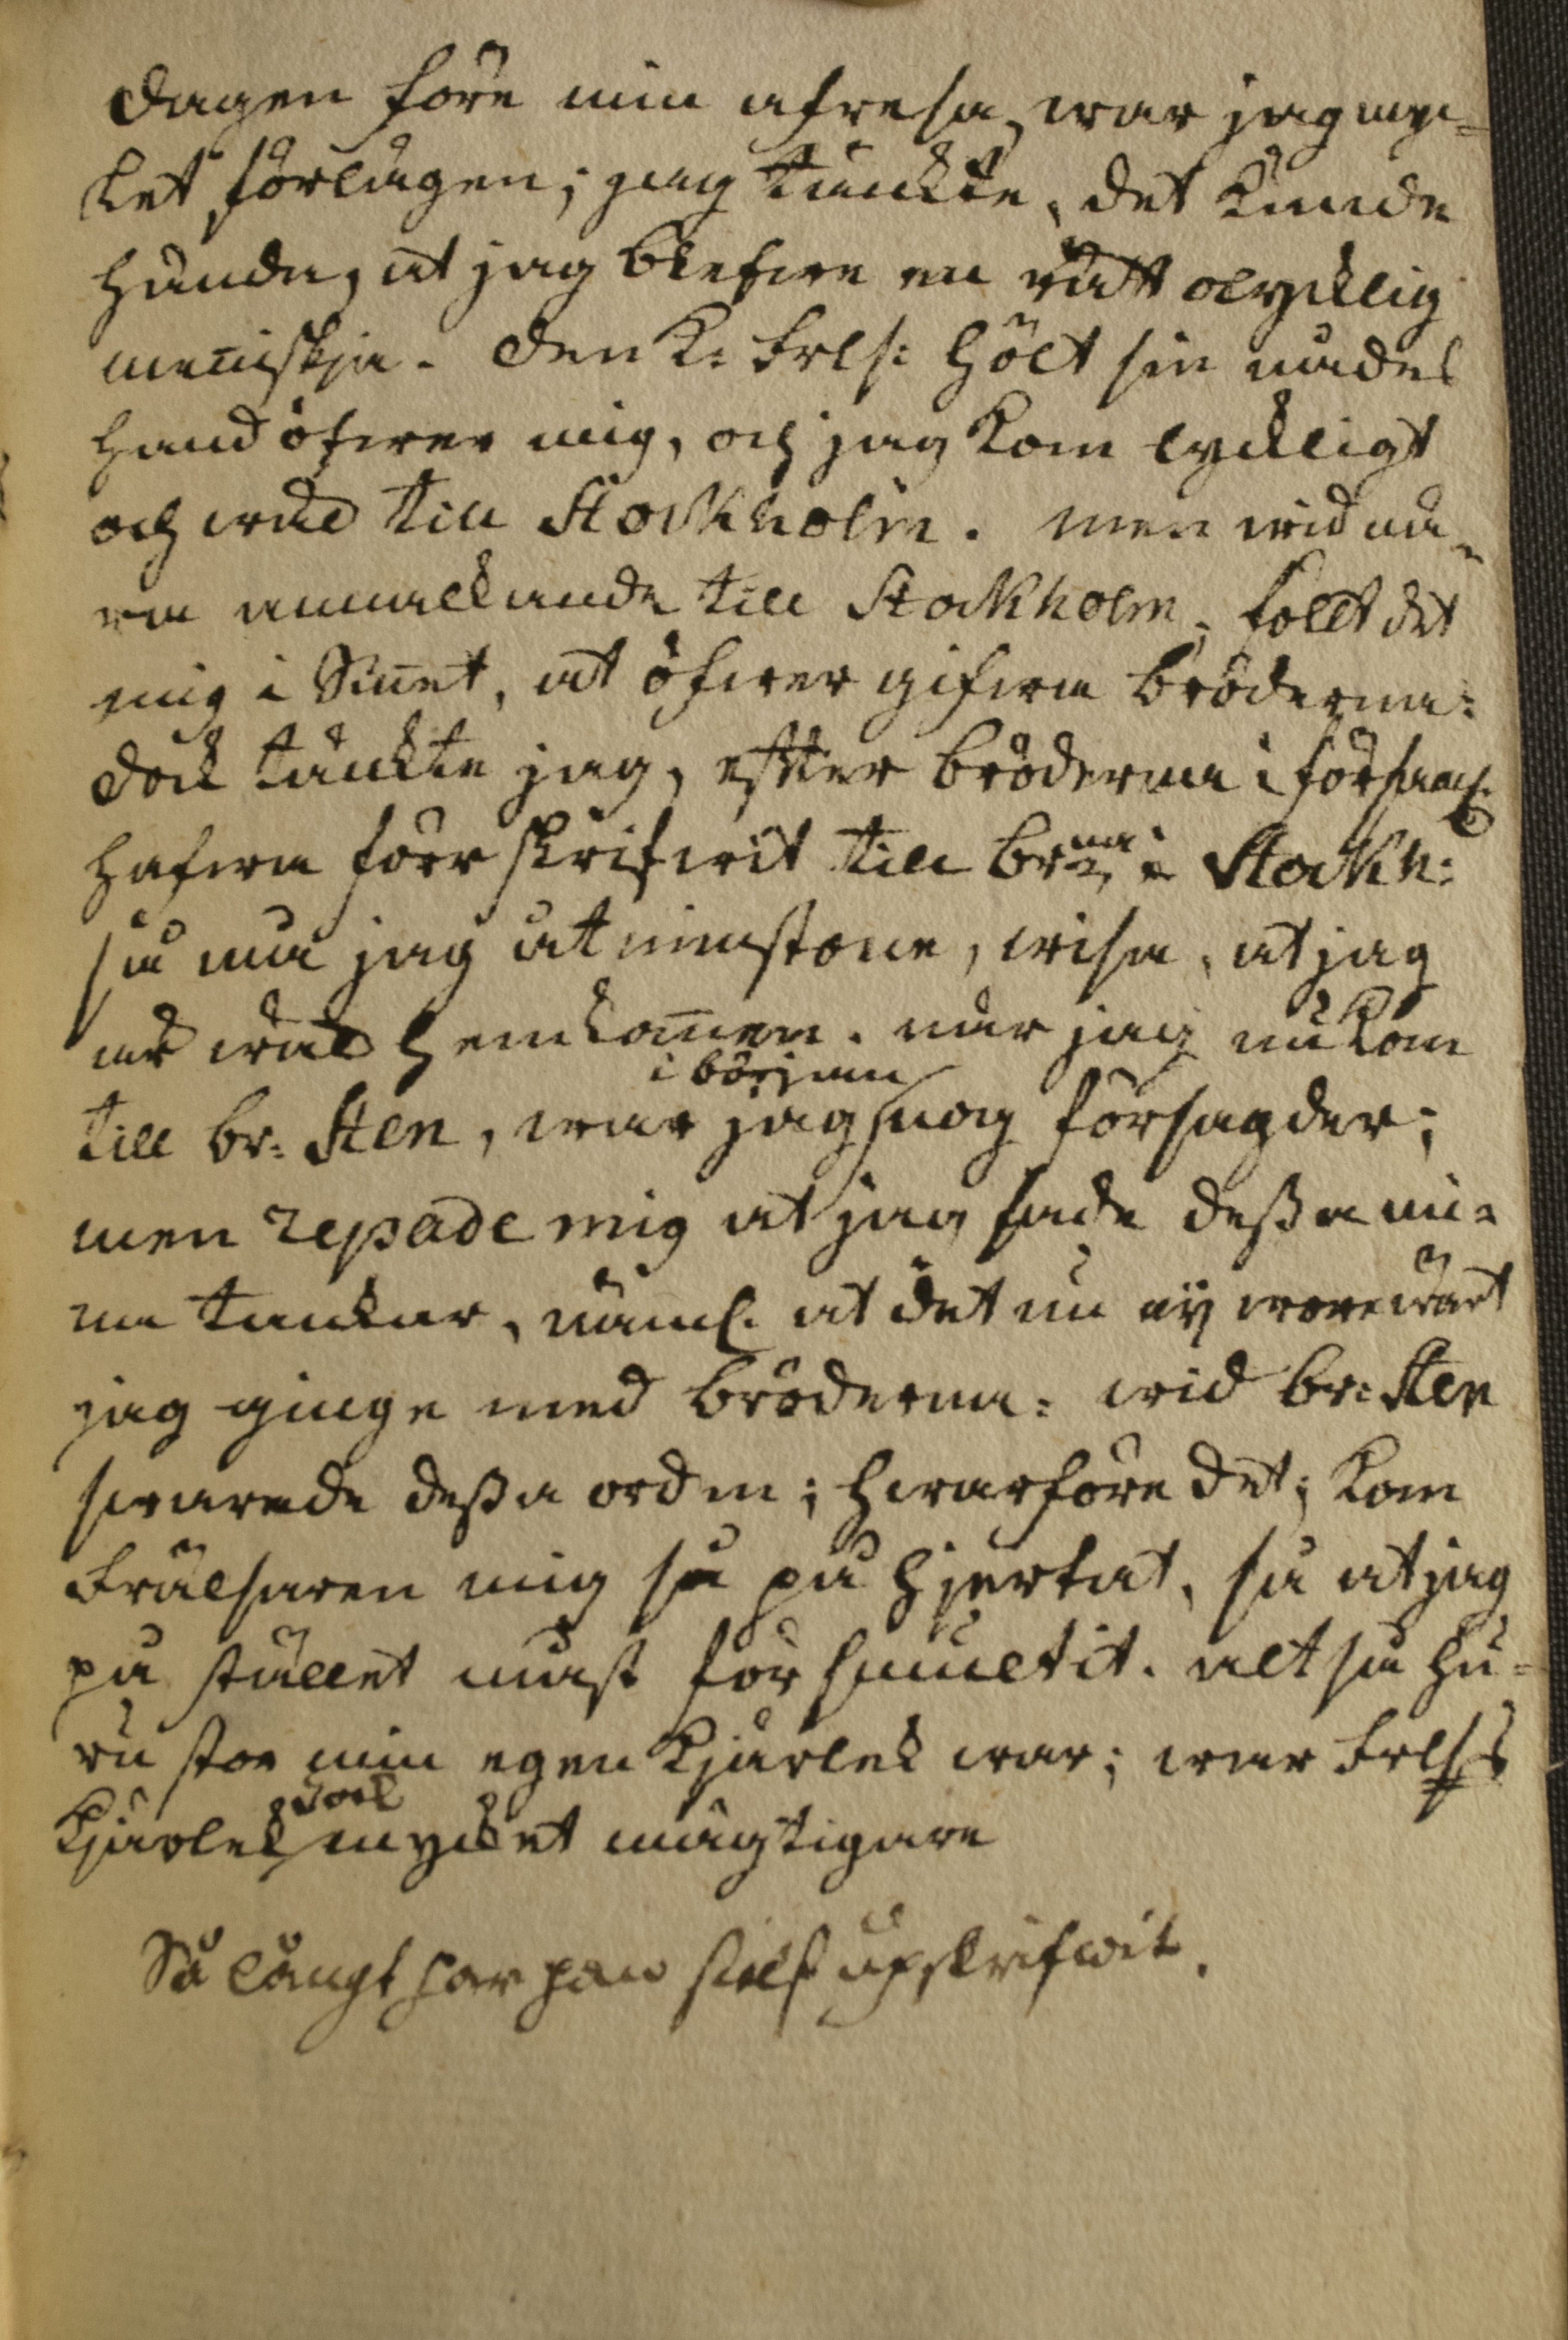 Dagen före min afresa, war jag myc-
ket förlägen; jag tänckte, det kunde
hända, at jag blefwe en rätt olycklig
meniskja. Den k: Frels: hölt sin nådes
hand öfwer mig, och jag kom lyckligt
och wäl till Stockholm. men wid nä-
ra annalkande till Stockholm, follt det
mig i Sinet, at öfwer gifwa bröderna:
dock tänckte jag, efter bröderna i församl.
hafwa förr skrifwit till br:na i Stockh:
så må jag åtminstone, wisa, at jag
är wäl hemkomen. när jag nu kom
till br: Sten, war jag i början nog försagder;
men repade mig at jag sade dessa mi-
na tankar, näml. at det nu ej wore wärt
jag ginge med bröderna: wid br: Sten
swarade dessa orden; hwarföre det; kom
Frälsaren mig så på hjertat, så at jag
på stället måst försmultit. altså hu-
ru stor min egen Kjärlek war; war Frels:s
Kjärlek dock mycket mägtigare
Så långt har han sielf upskrifwit.